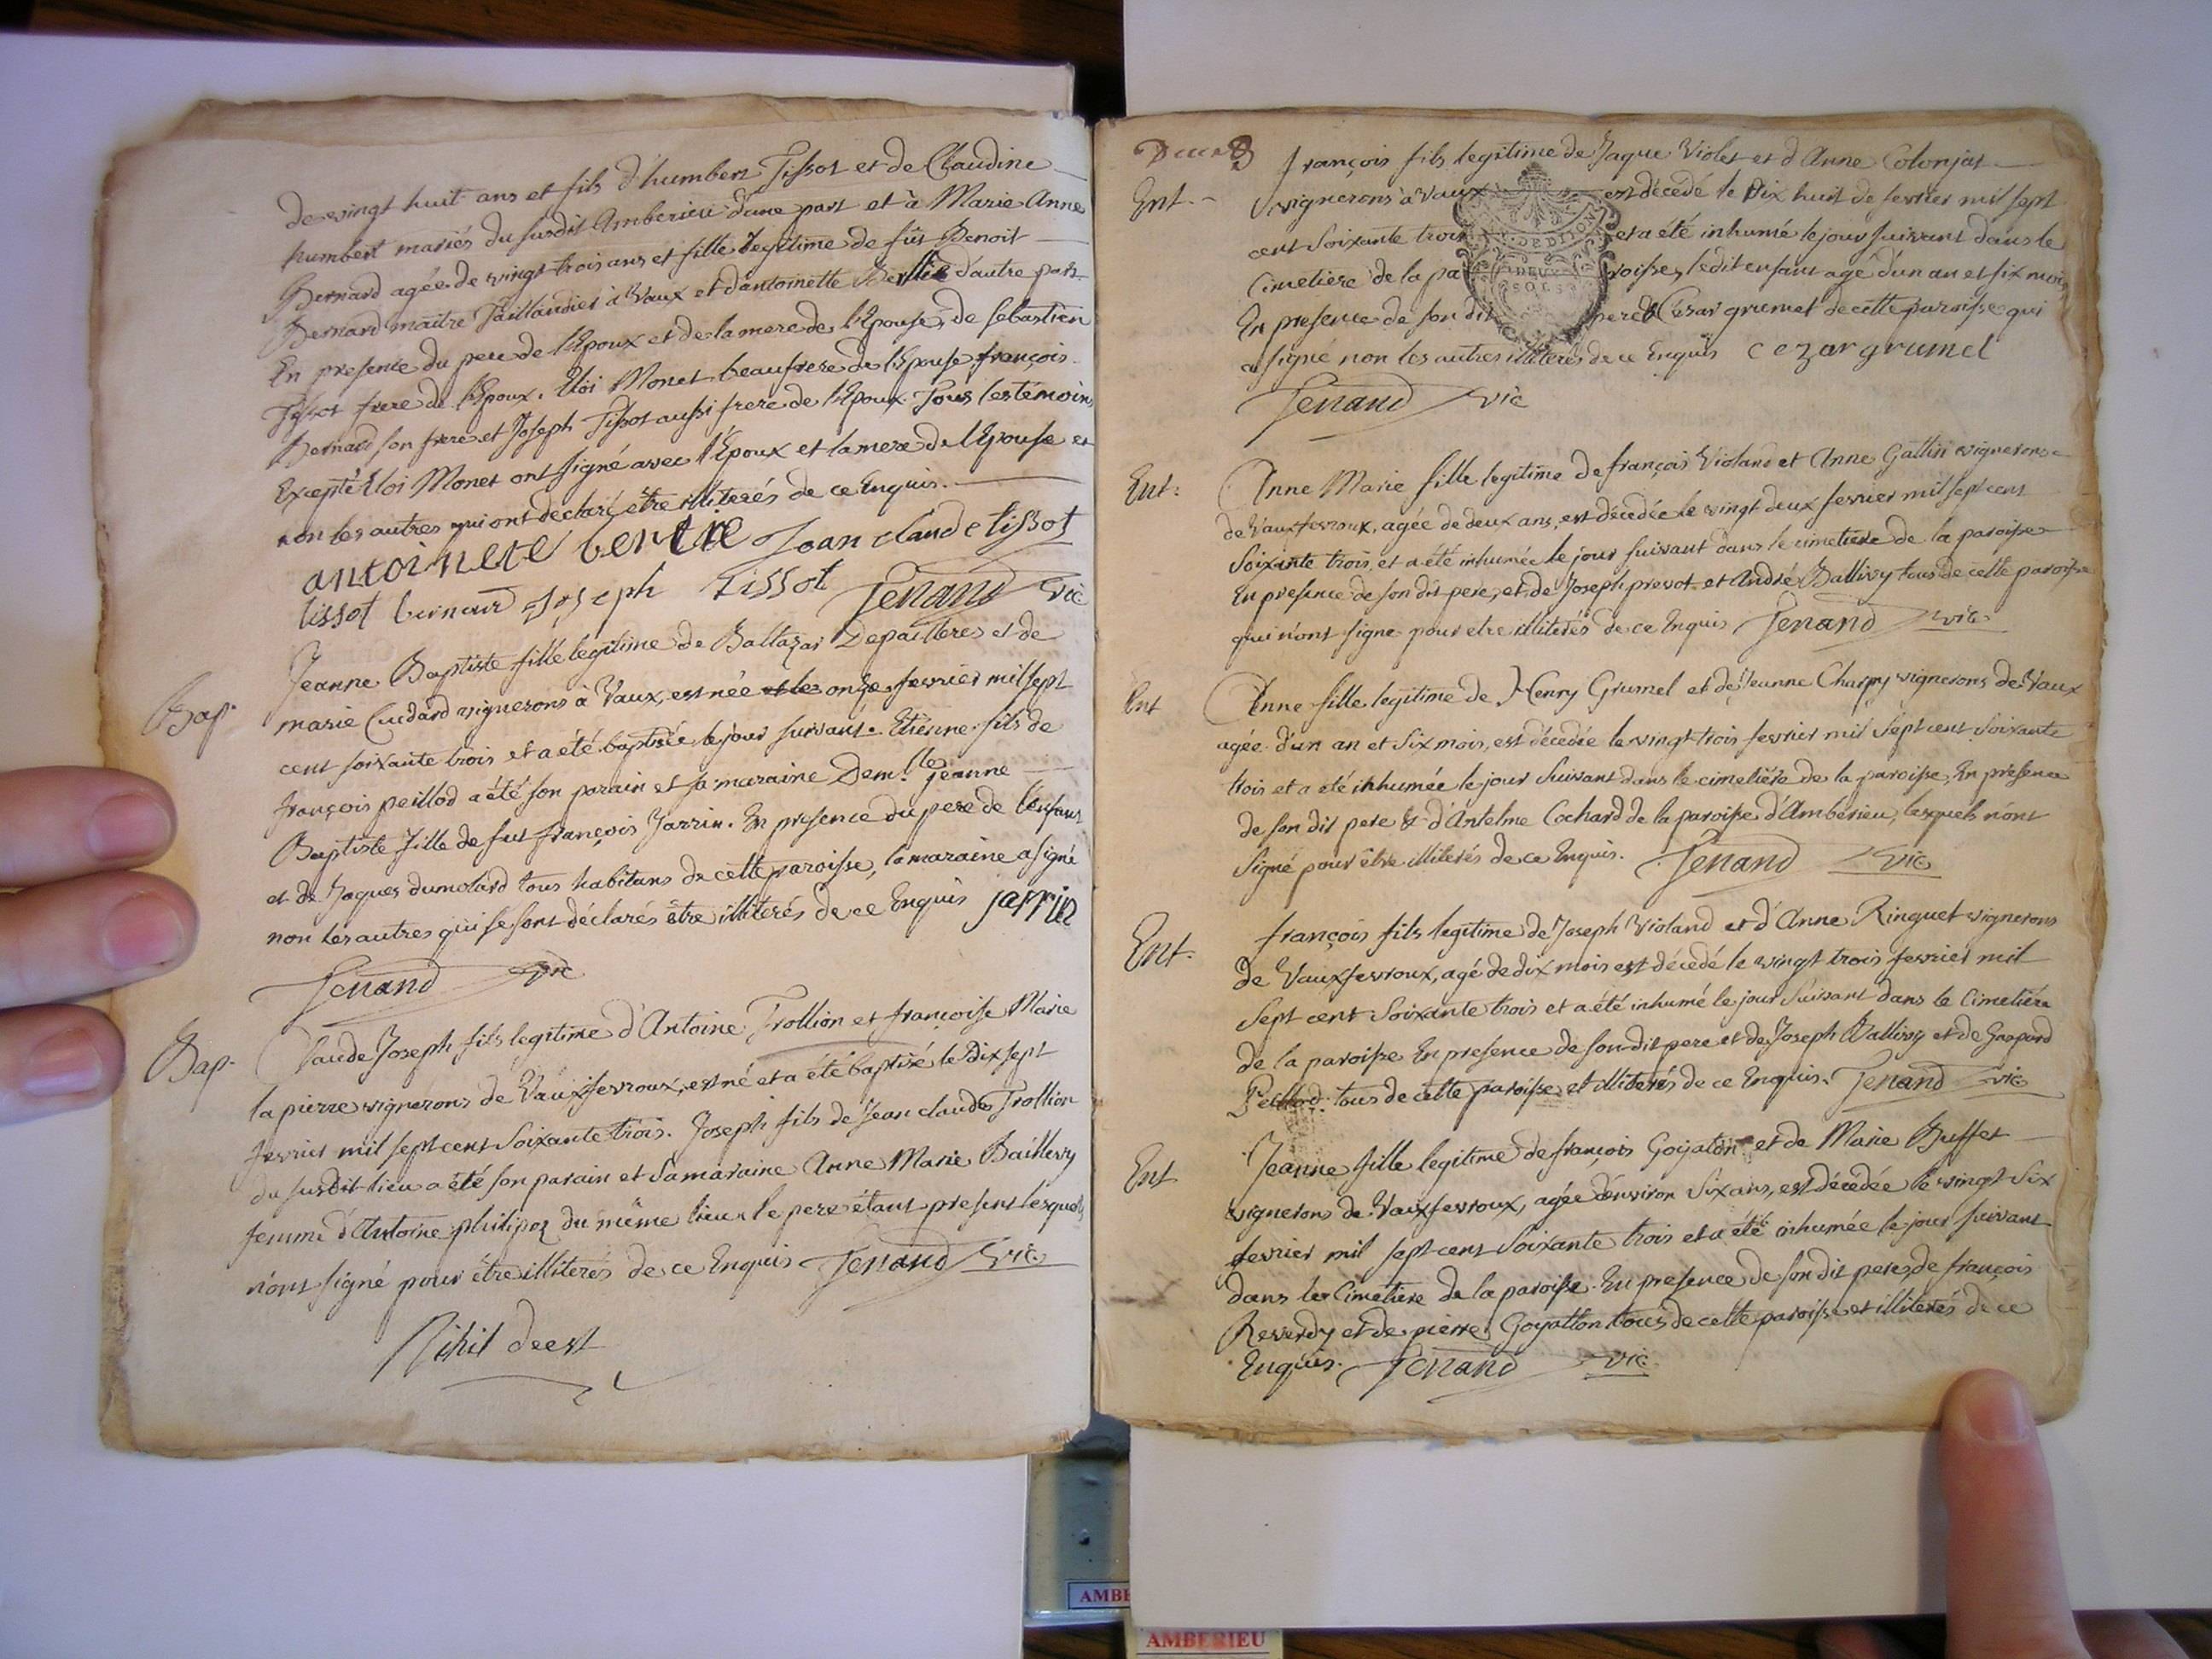 de vingt huit ans et fils d'humbert Tissot et de Claudine
humbert mariés du susdit Amberieu d'une part et à Marie Anne
Bernard agée de vingt trois ans et fille legitime de fût Benoit
Bernard maitre Taillandier à Vaux et d'antoinette d'autre part
En presence du pere de l'Epoux et de la mere de l'Epouse, de sebastien
Tissot frere de l'Epoux. Eloi Monet beaufrere de l'Epouse, françois
Bernard son frere et Joseph Tissot aussi frere de l'Epoux. Tous les témoins
Excepté Eloi Monet ont signé avec l'Epoux et la mere de l'Epouse et
non les autres qui ont déclaré être illiterés de ce Enquis.
antoinete Jean claude tissot
tissot bernard Joseph Tissot Ferrand vic
Bap.
Jeanne Baptiste fille legitime de Baltazar Depailleres et de
marie Cuidard vignerons à Vaux, est née le onze fevrier mil sept
cent soixante trois et a été baptisée le jour suivant. Etienne fils de
françois peillod a été son parain et sa maraine Dem.lle Jeanne
Baptiste fille de fut françois Jarrin. En presence du pere de l'enfant
et de Jaques dumolard tous habitans de cette paroisse, la maraine a signé
non les autres qui se sont déclarés être illiterés de ce Enquis jarrin
Ferrand vic
Bap.
Claude Joseph fils legitime d'Antoine Trollion et françoise Marie
la pierre vignerons de Vauxfevroux, est né et a été baptisé le dix sept
fevrier mil sept cent soixante trois. Joseph fils de Jean claude Trollion
du susdit lieu a été son parain et sa maraine Anne Marie Baillivy
femme d'Antoine philipoz du même lieu. le pere étant present lesquels
n'ont signé pour être illiterés de ce Enquis Ferrand vic
Nihil deest
8
françois fils legitime de Jaque Violet et d'Anne Colonjat
Ent.
vignerons à Vaux est décédé le dix huit de fevrier mil sept
cent soixante trois et a été inhumé le jour suivant dans le
Cimetiere de la paroisse, ledit enfant agé d'un an et six mois
En presence de son dit pere & César grumet de cette paroisse qui
a signé non les autres illiterés de ce Enquis cezar grumel
Ferrand vic
Ent:
Anne Marie fille legitime de françois Violand et Anne Gallin vignerons
de Vauxfevroux, agée de deux ans, est décédée le vingt deux fevrier mil sept cent
soixante trois, et a été inhumée le jour suivant dans le cimetiere de la paroisse
En presence de son dit pere, et de Joseph prevot et André Ballivy tous de cette paroisse
qui n'ont signé pour etre illiterés de ce Enquis Ferrand vic
Ent
Anne fille legitime de Henry Grumel et de Jeanne Charpy vignerons de Vaux
agée d'un an et six mois, est décédée le vingt trois fevrier mil sept cent soixante
trois et a été inhumée le jour suivant dans le cimetiére de la paroisse, En presence
de son dit pere & d'Antelme Cochard de la paroisse d'Amberieu, lesquels n'ont
signé pour être illiterés de ce Enquis. Ferrand vic
Ent.
françois fils legitime de Joseph Violand et d'Anne Ringuet vignerons
de Vauxfevroux, agé de dix mois est décedé le vingt trois fevrier mil
sept cent soixante trois et a été inhumé le jour suivant dans le Cimetiére
de la paroisse En presence de son dit pere et de Joseph Ballivy et de Gaspard
Peillod. tous de cette paroisse et illiterés de ce Enquis. Ferrand vic
Ent
Jeanne fille legitime de françois Goyaton et de Marie Buffet
vignerons de Vauxfevroux, agée d'environ six ans, est décedée le vingt six
fevrier mil sept cent soixante trois et a été inhumée le jour suivant
dans le Cimetiere de la paroisse. En presence de son dit pere, de françois
Reverdy et de pierre Goyatton tous de cette paroisse et illiterés de ce
Enquis. Ferrand vic
AMBE
AMBERIEU